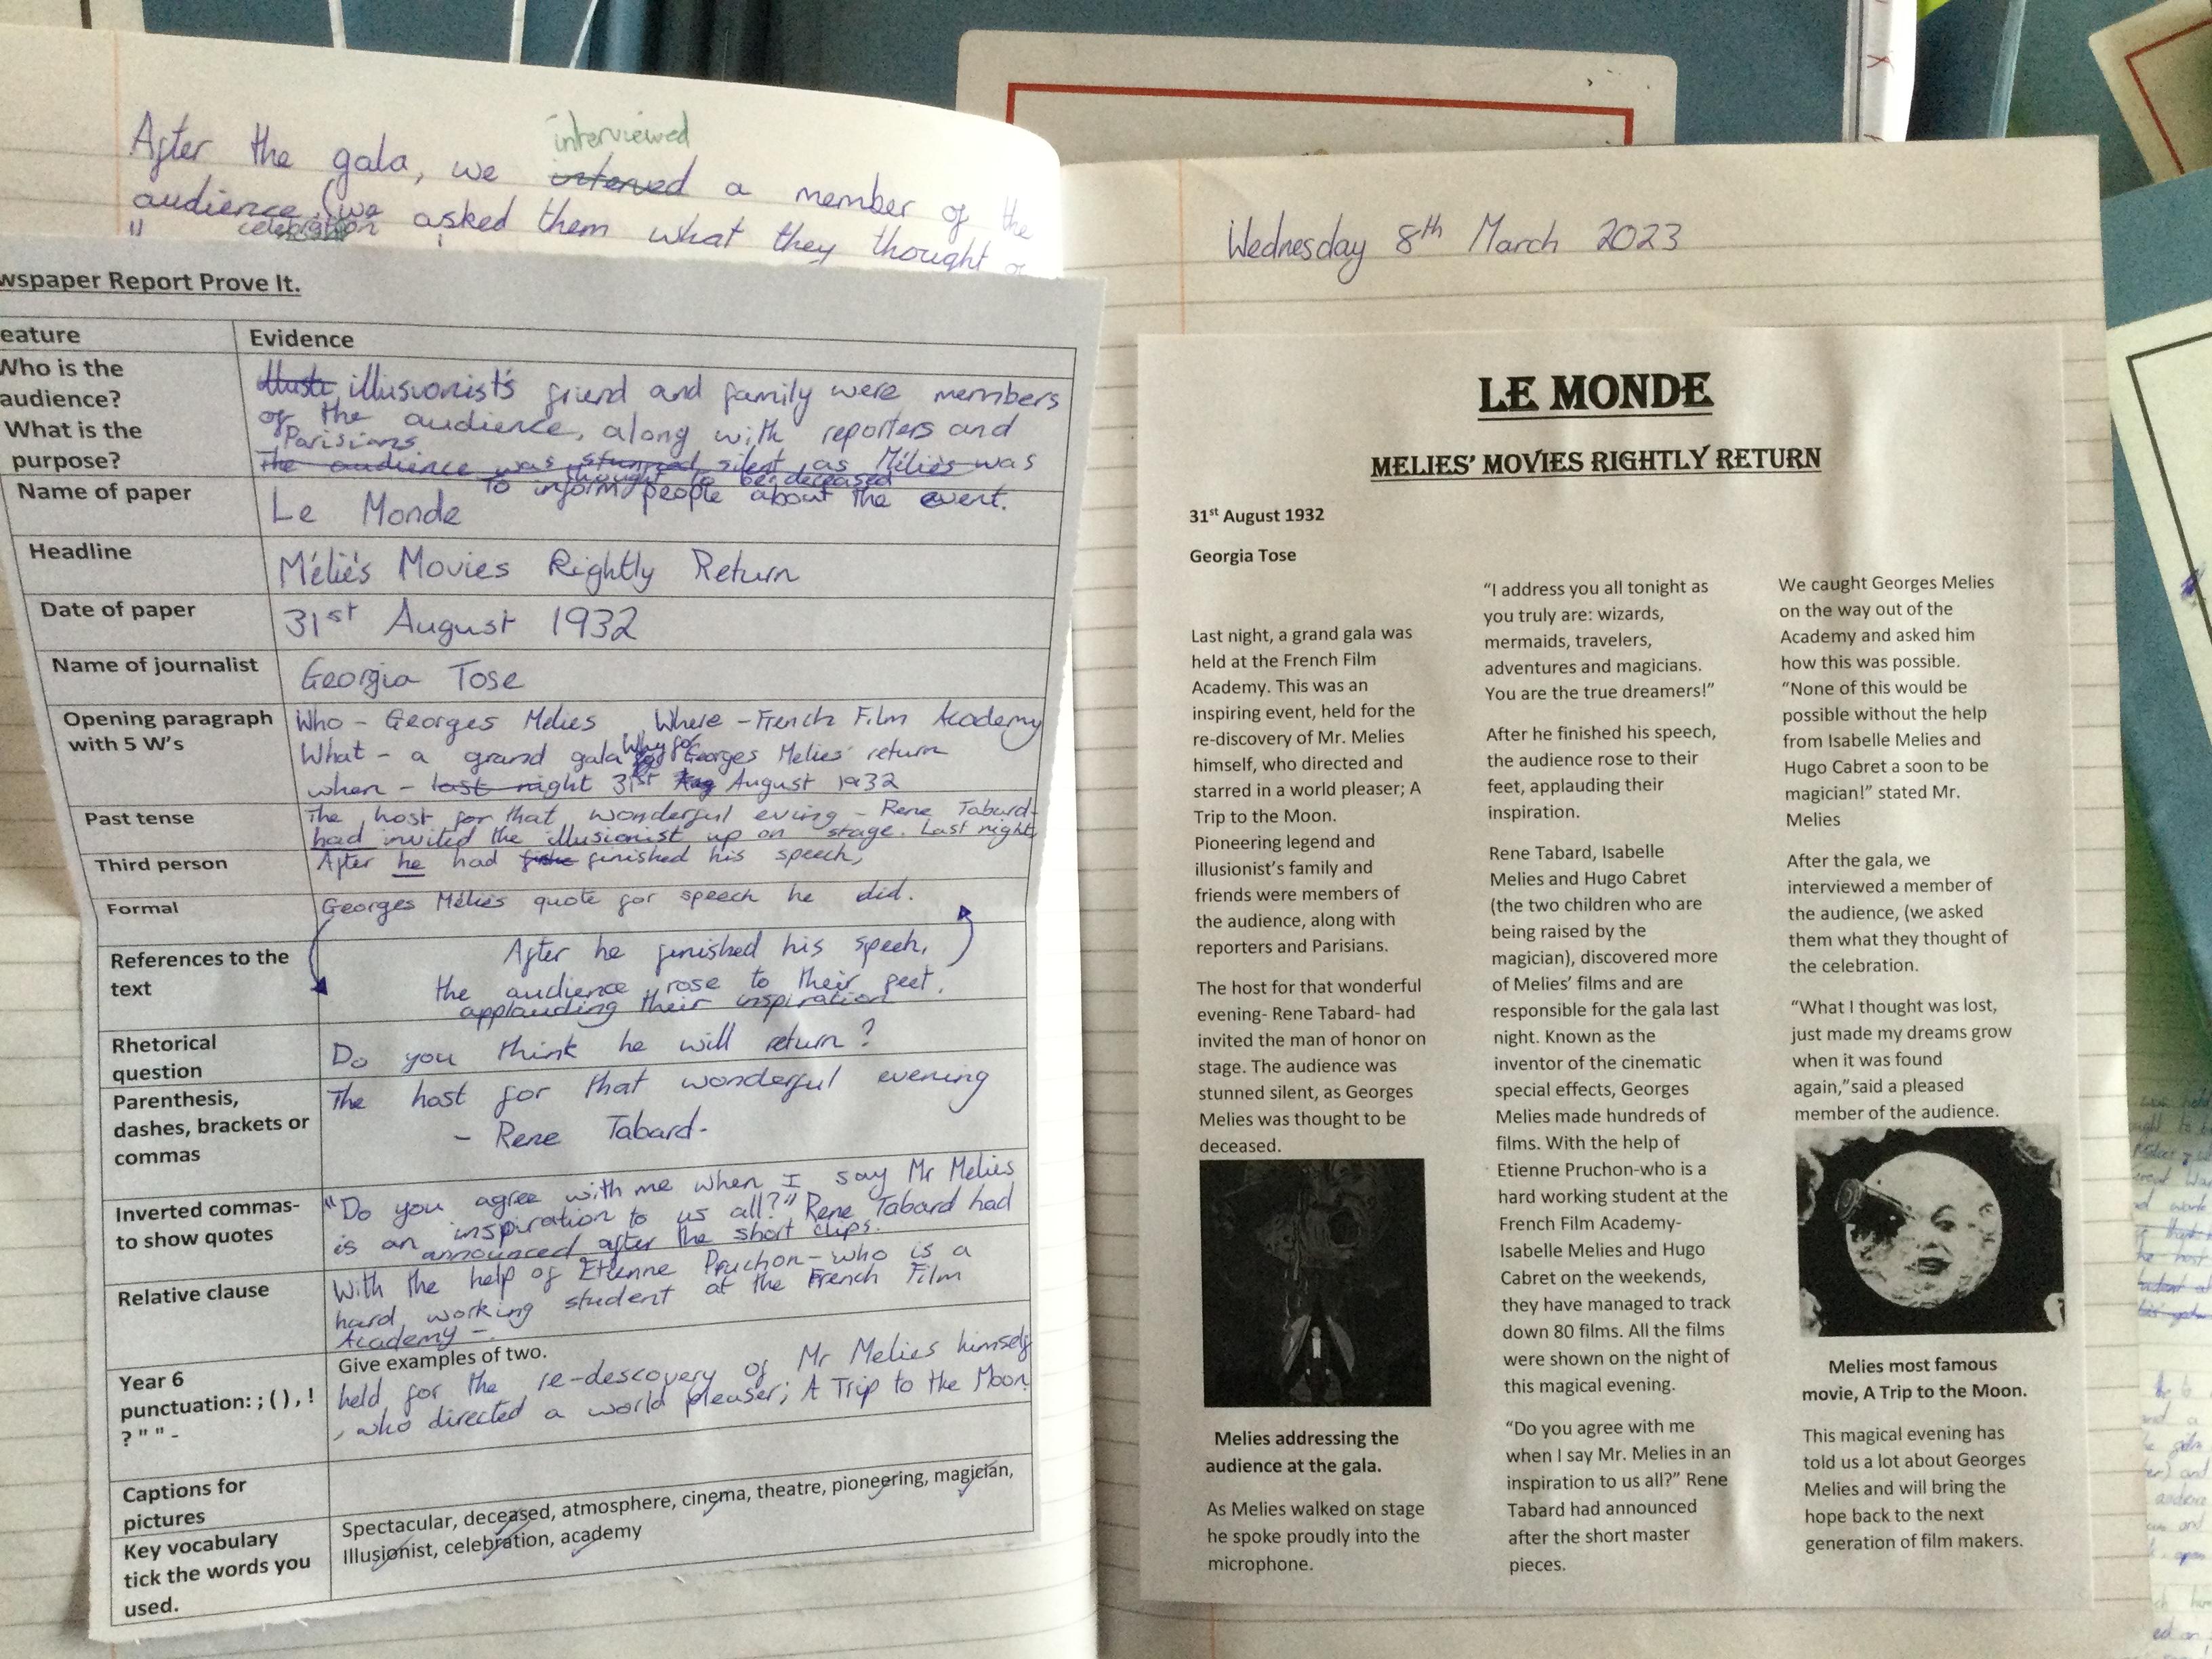 After the gala, we interviewed
interved a member of the
audience, (we asked them what they thought
" celebration
wspaper Report Prove It.
eature
Evidence
Who is the
audience?
What is the
purpose?
illusionist's friend and family were members
of the audience, along with reporters and
Parisians.
The audience was stunned silent as Méliès was
thought to be deceased
To inform people about the event.
Name of paper
Le Monde
Headline
Méliès Movies Rightly Return
Date of paper
31st August 1932
Name of journalist
Georgia Tose
Opening paragraph
with 5 W's
Who - Georges Melies Where - French Film Academy
What - a grand gala Why for Georges Melies' return
when - last night 31st Aug August 1932
Past tense
The host for that wonderful eving - Rene Tabard-
had invited the illusionist up on stage. Last night
Third person
After he had finished his speech,
Formal
Georges Méliès quote for speech he did.
References to the
text
After he finished his speech,
the audience rose to their feet,
applauding their inspiration
Rhetorical
question
Do you think he will return?
Parenthesis,
dashes, brackets or
commas
The host for that wonderful evening
- Rene Tabard-
Inverted commas-
to show quotes
"Do you agree with me when I say Mr Melies
is an inspiration to us all?" Rene Tabard had
announced after the short clips.
Relative clause
With the help of Etienne Pruchon-who is a
hard working student at the French Film
Academy-.
Year 6
punctuation: ; ( ) , !
? " " -
Give examples of two.
held for the re-descovery of Mr Melies himself
, who directed a world pleaser; A Trip to the Moon
Captions for
pictures
Key vocabulary
tick the words you
used.
Spectacular, deceased, atmosphere, cinema, theatre, pioneering, magician,
Illusionist, celebration, academy
Wednesday 8th March 2023
LE MONDE
MELIES' MOVIES RIGHTLY RETURN
31st August 1932
Georgia Tose
Last night, a grand gala was
held at the French Film
Academy. This was an
inspiring event, held for the
re-discovery of Mr. Melies
himself, who directed and
starred in a world pleaser; A
Trip to the Moon.
Pioneering legend and
illusionist's family and
friends were members of
the audience, along with
reporters and Parisians.
The host for that wonderful
evening- Rene Tabard- had
invited the man of honor on
stage. The audience was
stunned silent, as Georges
Melies was thought to be
deceased.
Melies addressing the
audience at the gala.
As Melies walked on stage
he spoke proudly into the
microphone.
"I address you all tonight as
you truly are: wizards,
mermaids, travelers,
adventures and magicians.
You are the true dreamers!"
After he finished his speech,
the audience rose to their
feet, applauding their
inspiration.
Rene Tabard, Isabelle
Melies and Hugo Cabret
(the two children who are
being raised by the
magician), discovered more
of Melies' films and are
responsible for the gala last
night. Known as the
inventor of the cinematic
special effects, Georges
Melies made hundreds of
films. With the help of
Etienne Pruchon-who is a
hard working student at the
French Film Academy-
Isabelle Melies and Hugo
Cabret on the weekends,
they have managed to track
down 80 films. All the films
were shown on the night of
this magical evening.
"Do you agree with me
when I say Mr. Melies in an
inspiration to us all?" Rene
Tabard had announced
after the short master
pieces.
We caught Georges Melies
on the way out of the
Academy and asked him
how this was possible.
"None of this would be
possible without the help
from Isabelle Melies and
Hugo Cabret a soon to be
magician!" stated Mr.
Melies
After the gala, we
interviewed a member of
the audience, (we asked
them what they thought of
the celebration.
"What I thought was lost,
just made my dreams grow
when it was found
again,"said a pleased
member of the audience.
Melies most famous
movie, A Trip to the Moon.
This magical evening has
told us a lot about Georges
Melies and will bring the
hope back to the next
generation of film makers.